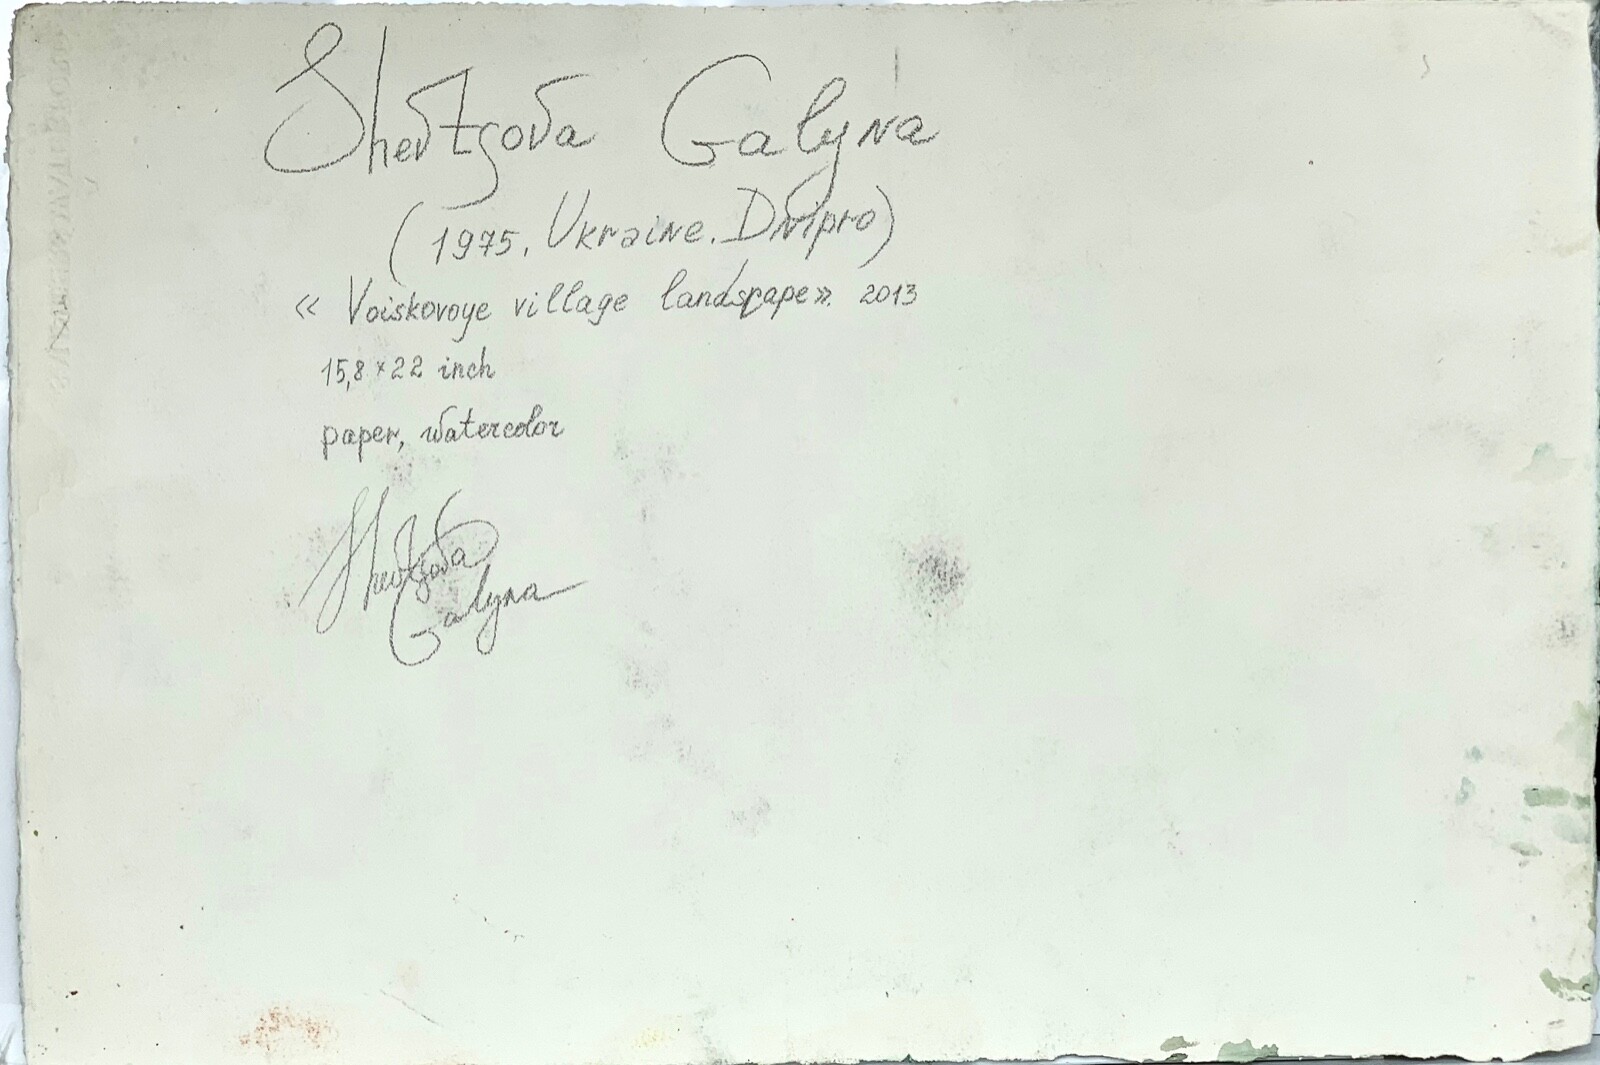 Shevtzova Galyna
(1975, Ukraine, Dnipro)
« Voiskovoye village landscape». 2013
15,8 × 22 inch
paper, watercolor
Shevtzova
Galyna